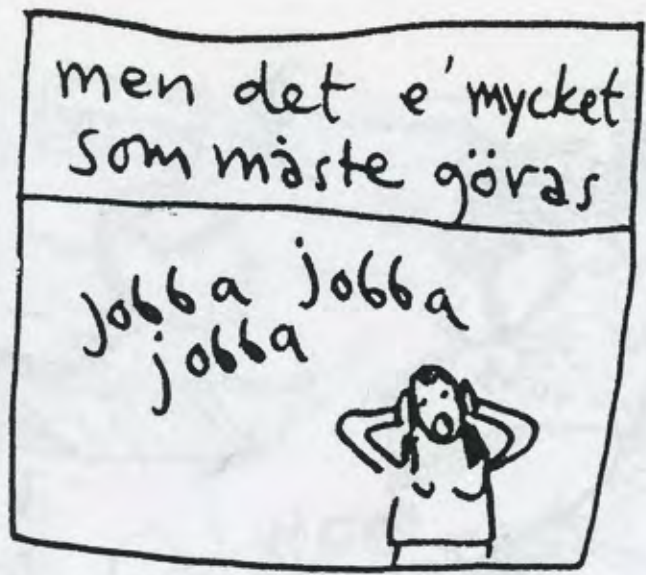 men det e' mycket
som måste göras
jobba jobba
jobba